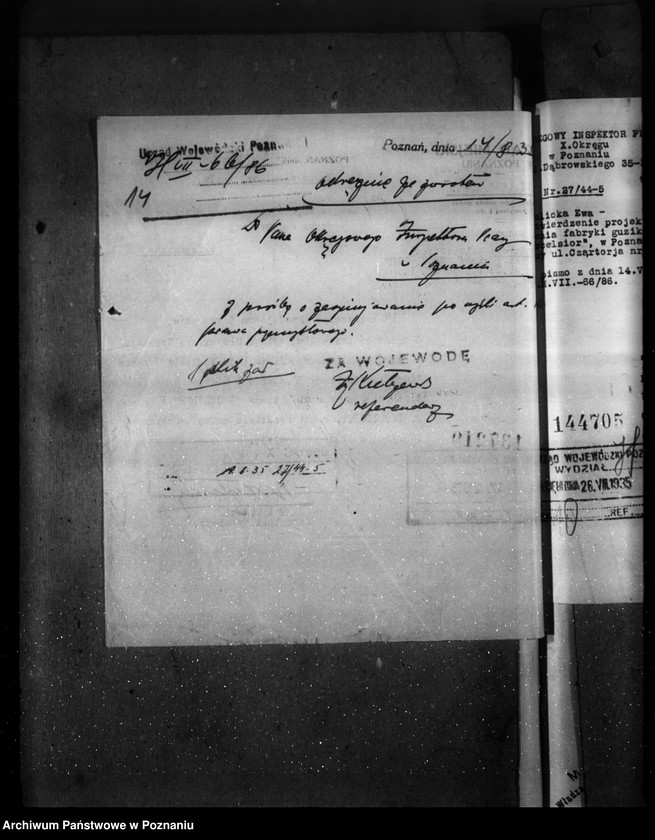 Urząd Wojewódzki Pozn
VII - 66/86
Poznań, dnia 14/8 35
14
odręcznie ze zwrotem
Do Pana Okręgowego Inspektora Pracy
w Poznaniu
Z prośbą o zaopinjowanie po myśli art.
prawa przemysłowego.
ZA WOJEWODĘ
referendarz
19.8.35 27/44-5
GOWY INSPEKTOR P
X.Okręgu
w Poznaniu
Dąbrowskiego 35-
Nr.27/44-5
licka Ewa -
wierdzenie projek
nia fabryki guzik
celsior", w Pozna
ul.Czartorja nr
pismo z dnia 14.V
.VII.-66/86.
144705
D WOJEWÓDZKI POZ
WYDZIAŁ
26.VIII.1935
REF.
Archiwum Państwowe w Poznaniu